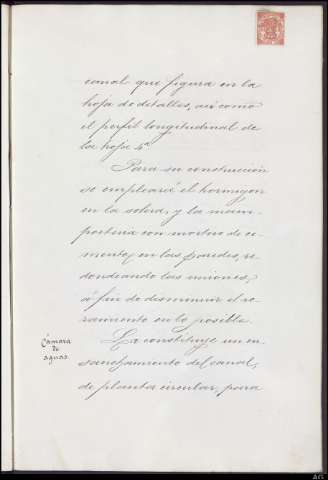 canal que figura en la
hoja de detalles, asi como
el perfil longitudinal de
la hoja 4ª
Para su construcción
se empleará el hormigon
en la solera, y la mam-
posteria con mortero de ce-
mento, en las paredes, re-
dondeando las uniones,
á fin de disminuir el ro-
zamiento en lo posible.
Cámara
de
aguas.
La constituye un en-
sanchamiento del canal,
de planta circular, para